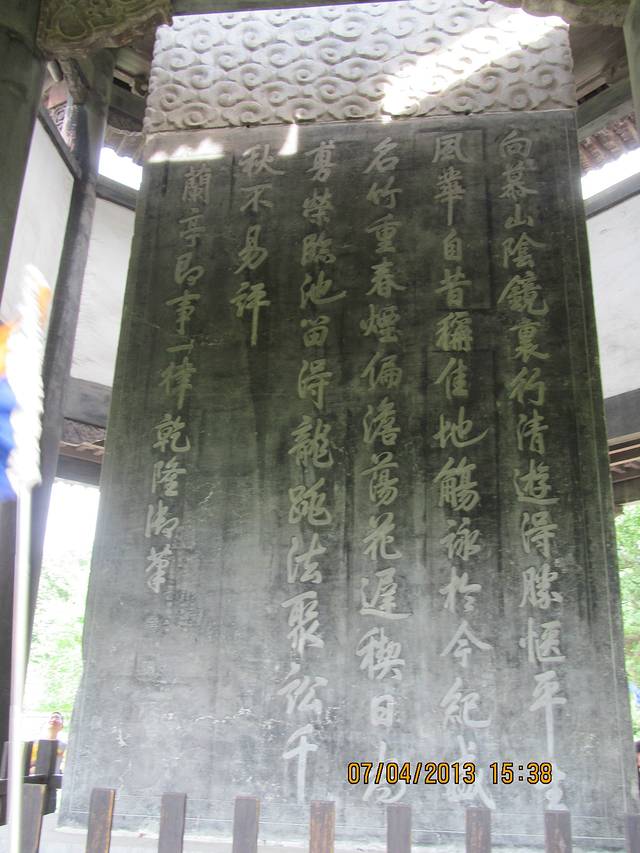 向慕山陰鏡裏行清遊得勝愜平生
風華自昔稱佳地觴詠於今紀盛
名竹重春煙偏澹蕩花遲禊日尚
敷榮臨池留得龍跳法聚訟千
秋不易評
蘭亭即事一律乾隆御筆
07/04/2013 15:38